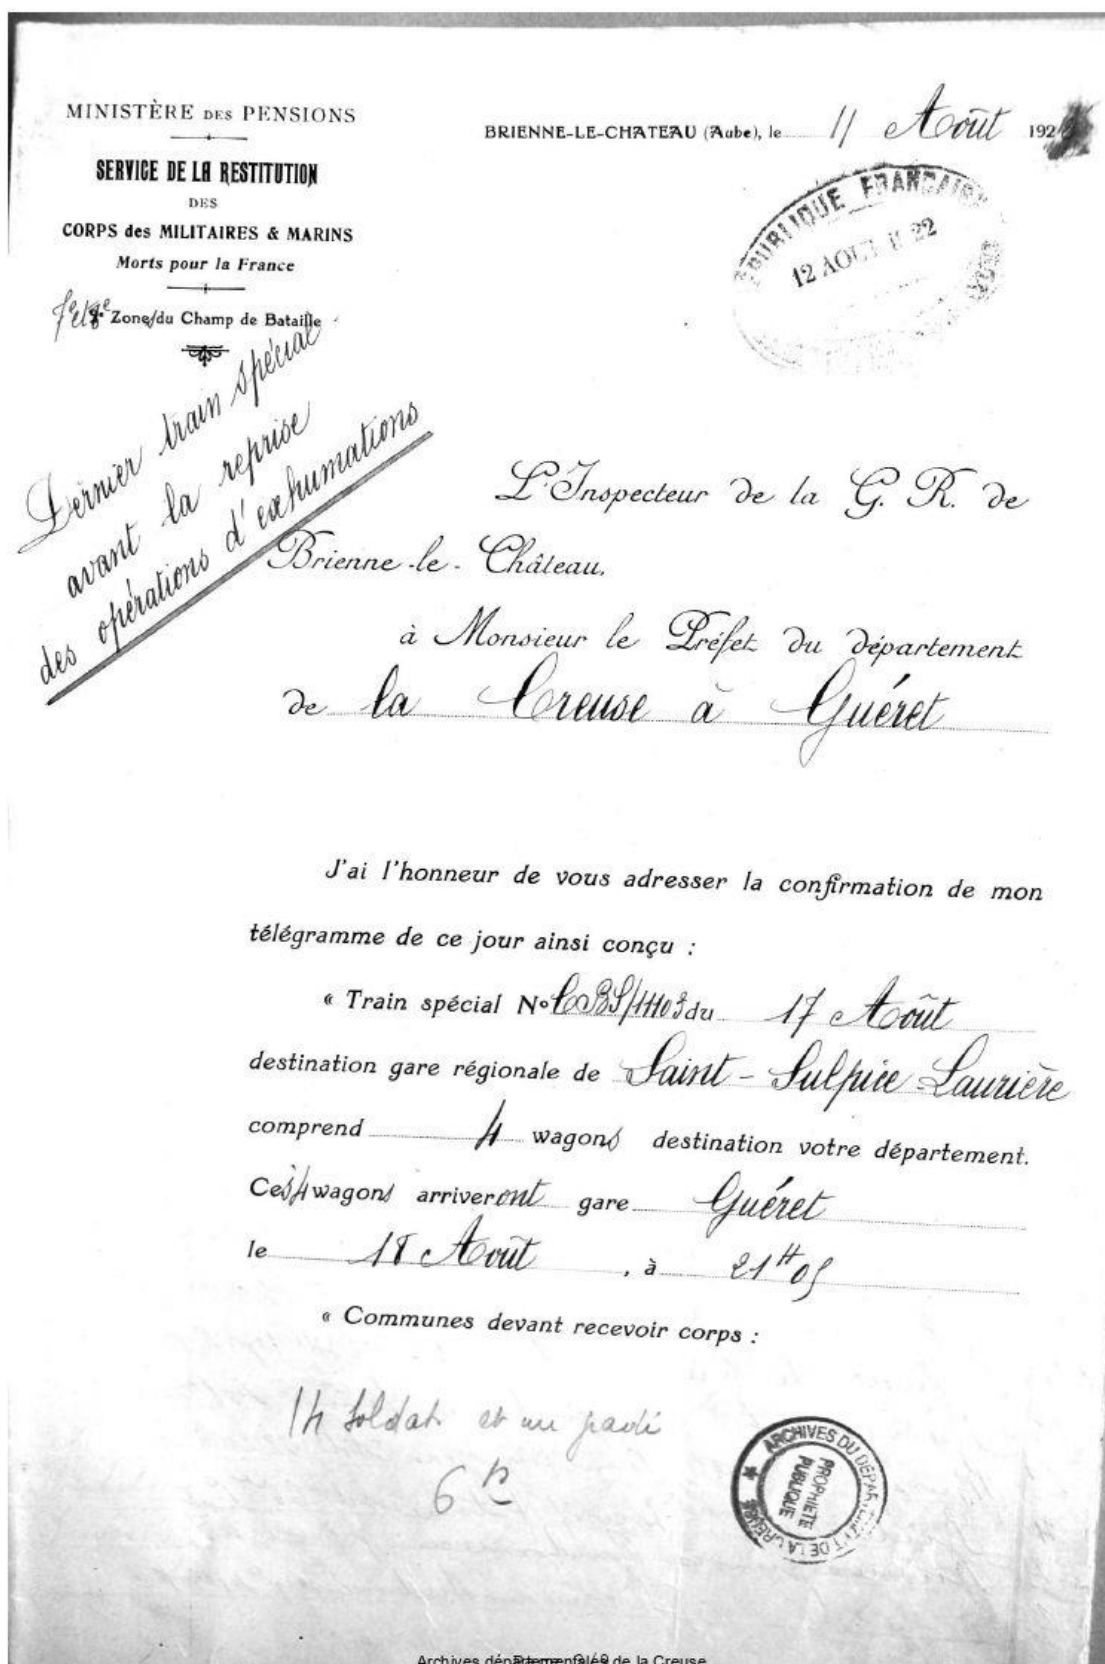 MINISTÈRE DES PENSIONS
SERVICE DE LA RESTITUTION
DES
CORPS des MILITAIRES & MARINS
Morts pour la France
7e et 8e Zone du Champ de Bataille
BRIENNE-LE-CHATEAU (Aube), le 11 Août 192
RÉPUBLIQUE FRANÇAISE
12 AOUT 22
Dernier train spécial
avant la reprise
des opérations d'exhumations
L'Inspecteur de la G. R. de
Brienne-le-Château.
à Monsieur le Préfet du département
de la Creuse à Guéret
J'ai l'honneur de vous adresser la confirmation de mon
télégramme de ce jour ainsi conçu :
« Train spécial No du 17 Août
destination gare régionale de Saint-Sulpice-Laurière
comprend 4 wagons destination votre département.
Ces 4 wagons arriveront gare Guéret
le 18 Août, à 21H05
« Communes devant recevoir corps :
14 soldats et un
6
ARCHIVES DU DÉPARTEMENT DE LA CREUSE
PROPRIÉTÉ
PUBLIQUE
Archives départementales de la Creuse